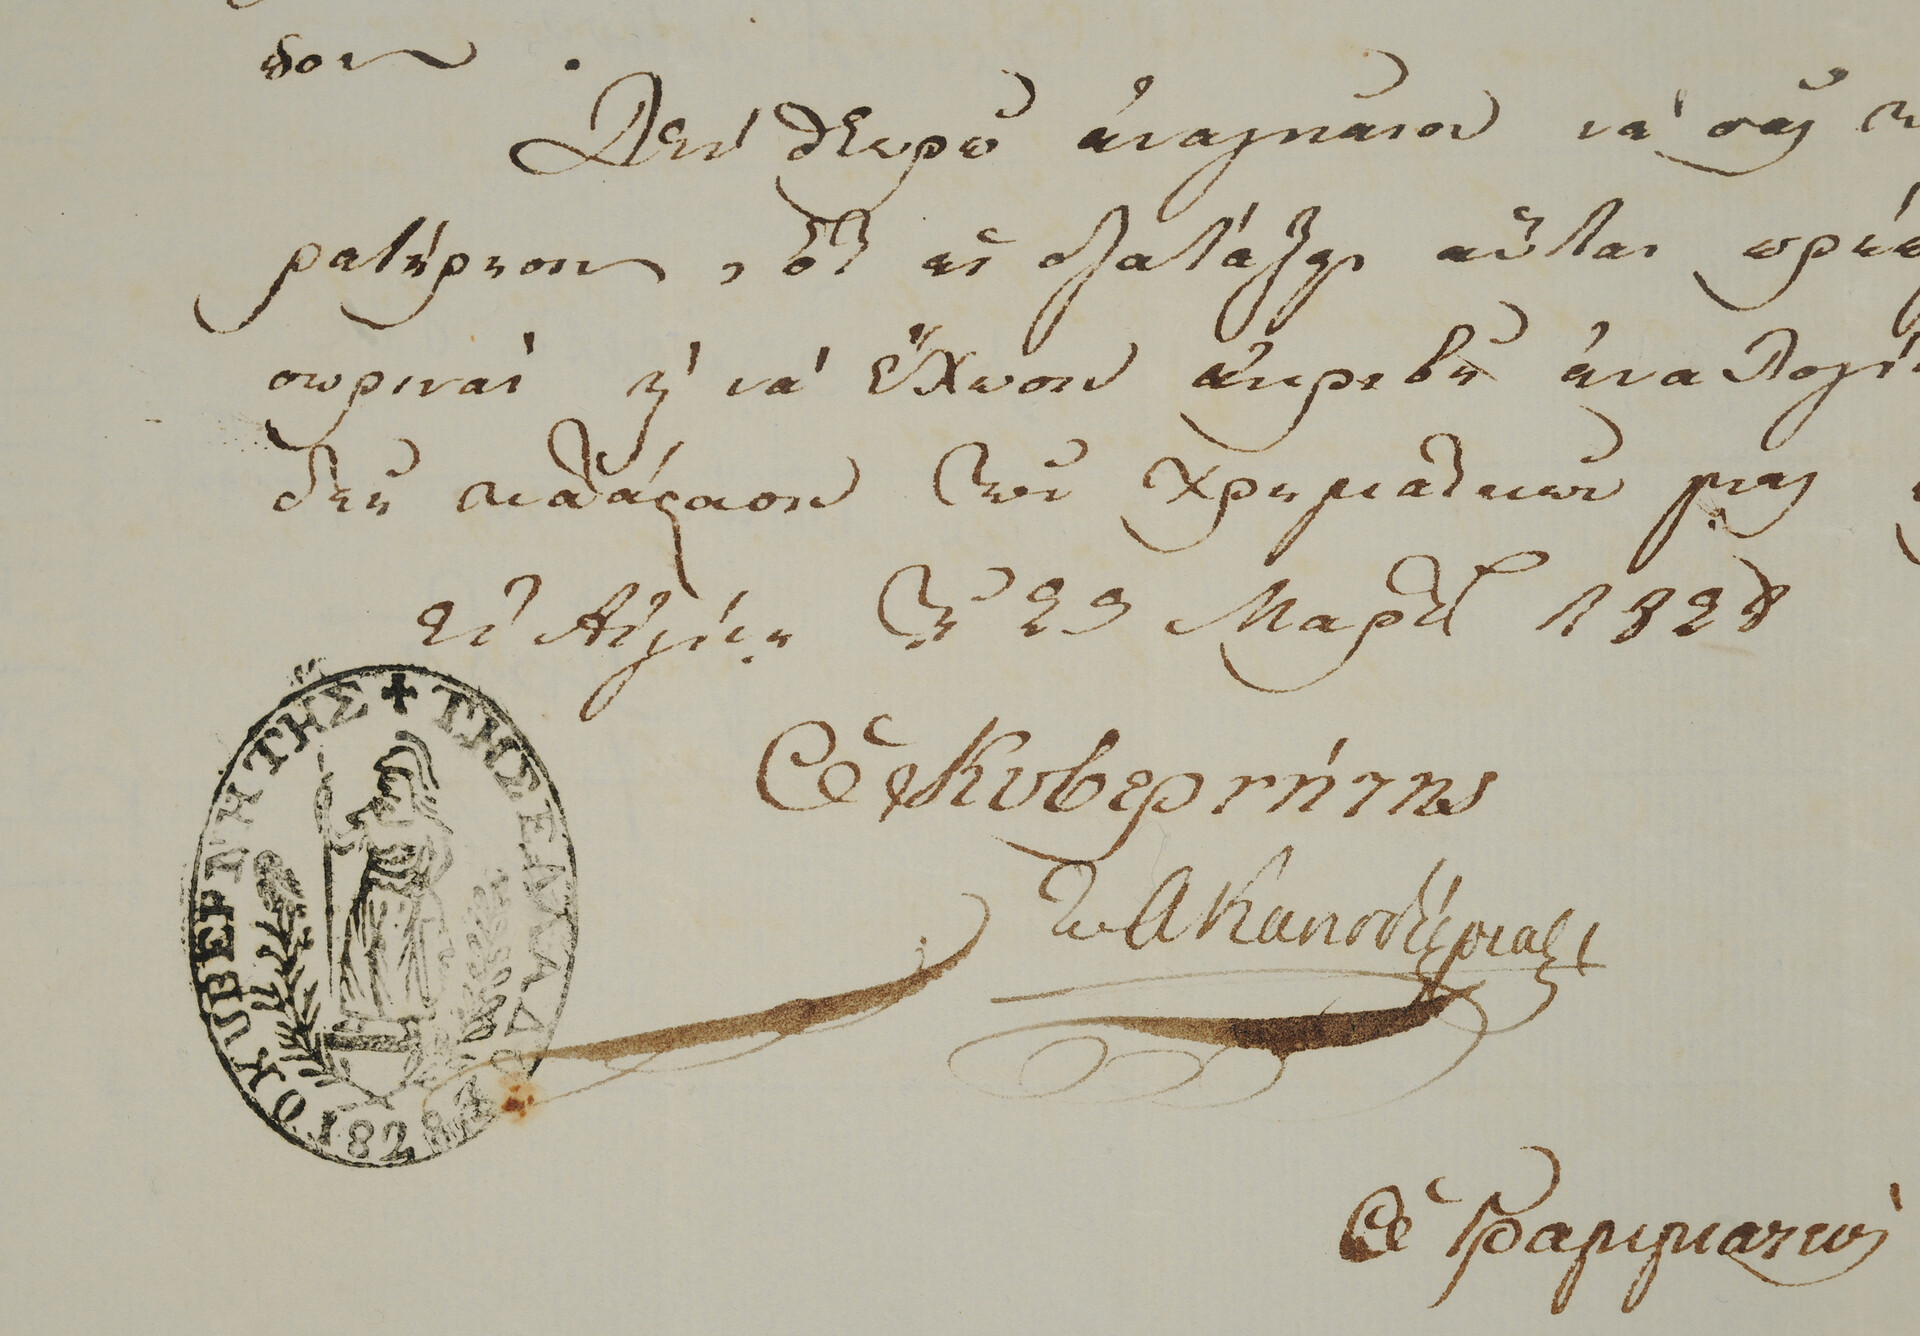 Δὲν θεωρῶ ἀναγκαῖον νὰ σᾶς
ρατήρησιν, ὅτι αἱ διατάξεις αὗται
σωριναὶ ἢ νὰ ἔχωσιν ἀκριβῆ ἀναλογί
κατάστασιν τῶν χρηματικῶν μας
Ἐν Αἰγίνῃ τῇ 29 Μαρτ 1828
Ὁ Κυβερνήτης
Ἰωα Καποδίστριας
Ὁ Γραμματεὺς
Ο ΚΥΒΕΡΝΗΤΗΣ ΤΗΣ ΕΛΛΑΔΟΣ
1828